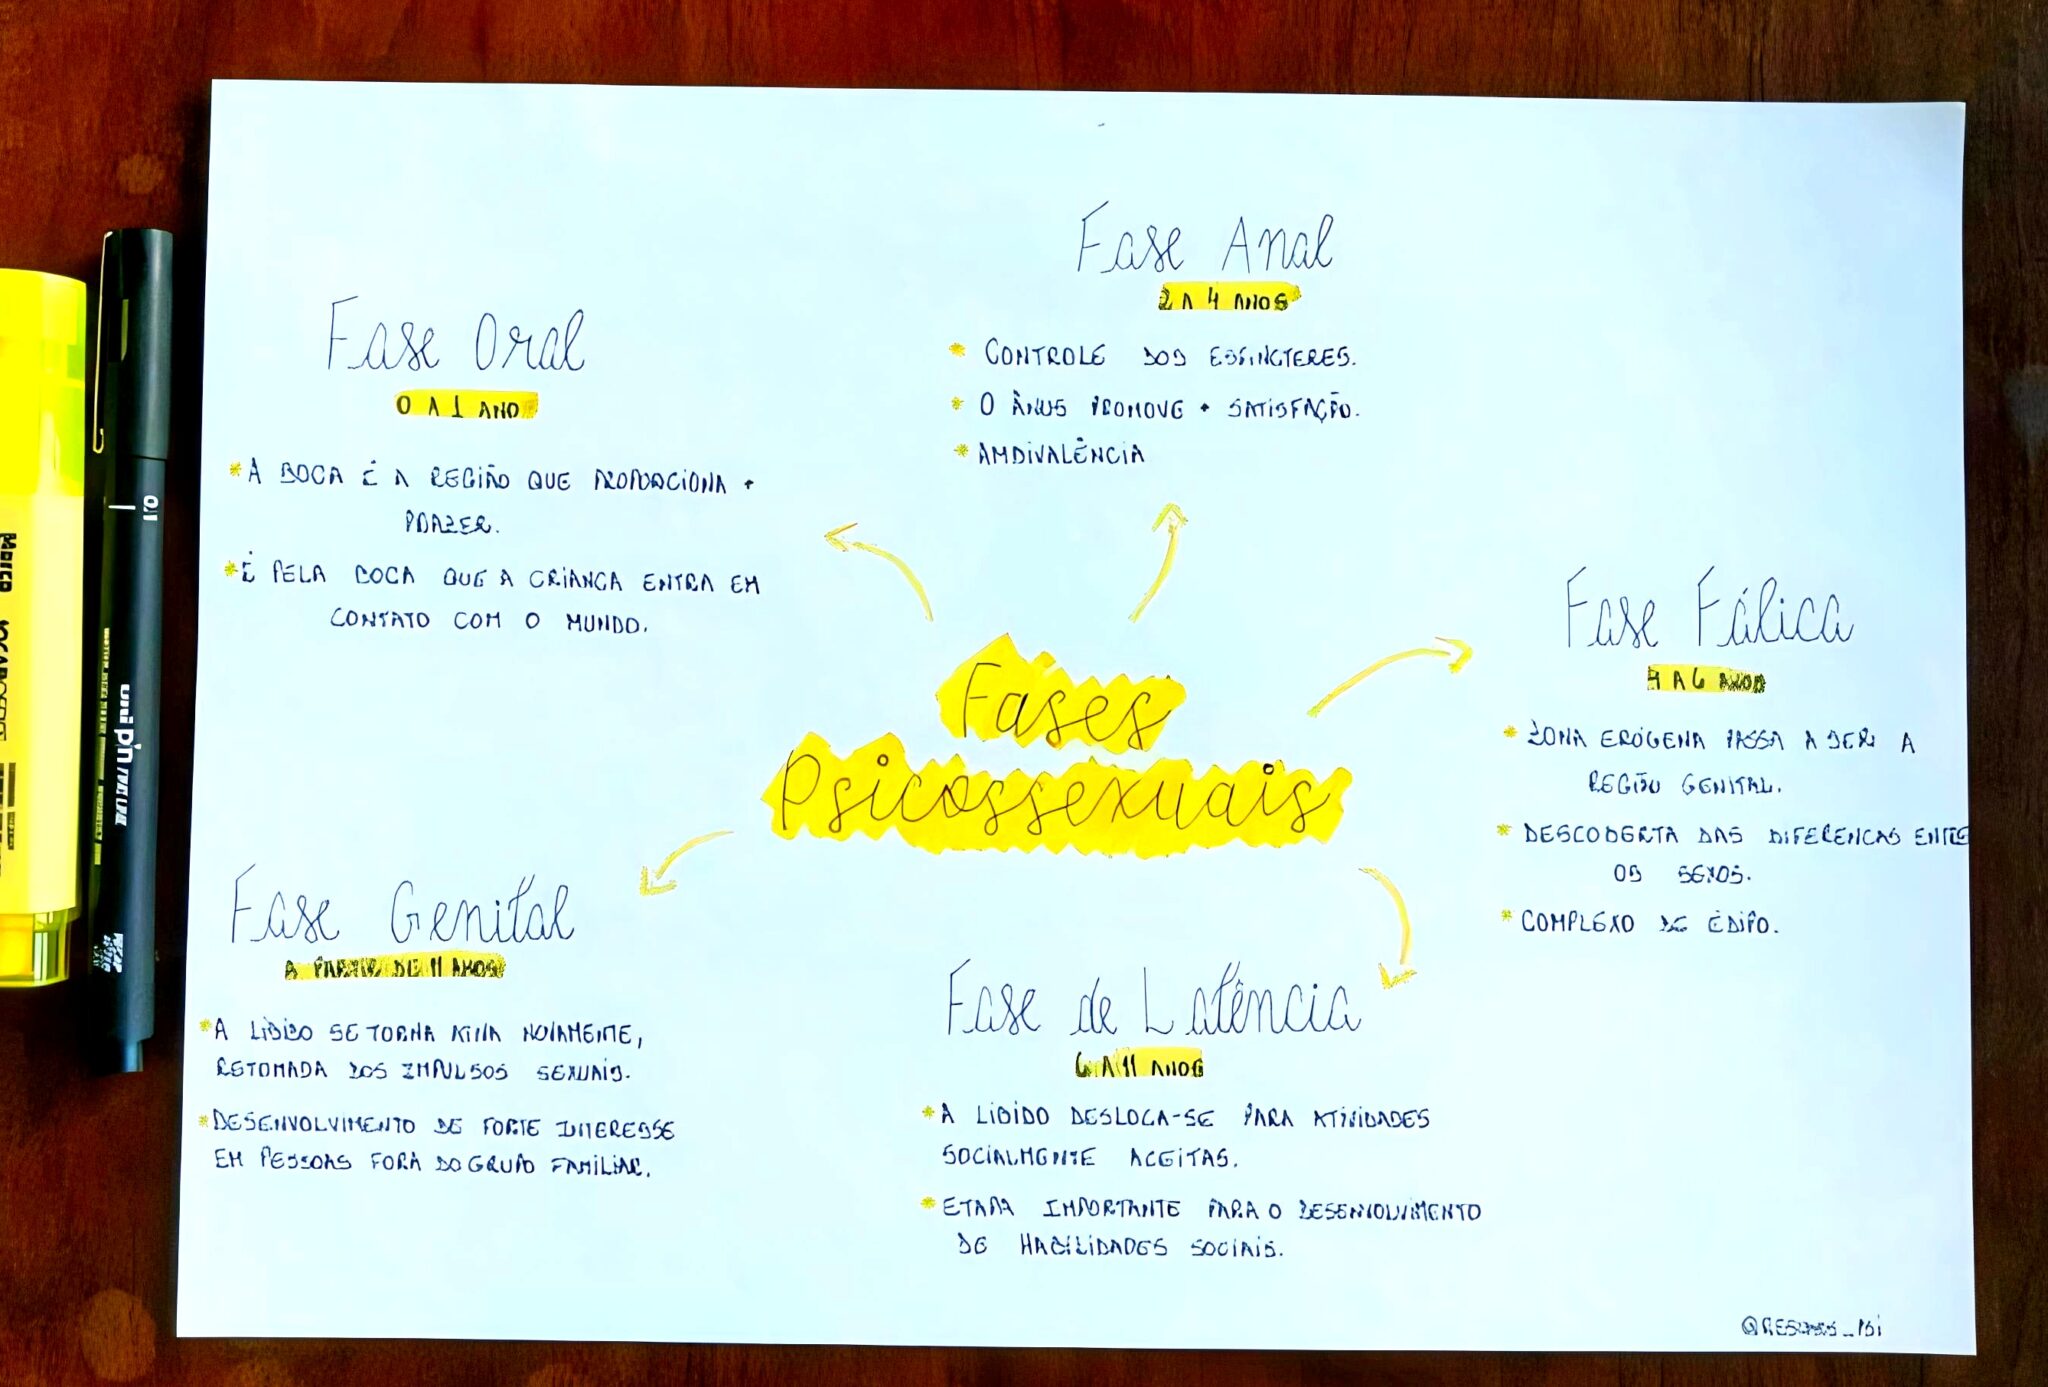 Fases
Psicossexuais
Fase Oral
0 A 1 ANO
* A BOCA É A REGIÃO QUE PROPORCIONA +
PRAZER.
* É PELA BOCA QUE A CRIANÇA ENTRA EM
CONTATO COM O MUNDO.
Fase Anal
2 A 4 ANOS
* CONTROLE DOS ESFINCTERES.
* O ÂNUS PROMOVE + SATISFAÇÃO.
* AMBIVALÊNCIA
Fase Fálica
4 A 6 ANOS
* ZONA ERÓGENA PASSA A SER A
REGIÃO GENITAL.
* DESCOBERTA DAS DIFERENCAS ENTRE
OS SEXOS.
* COMPLEXO DE ÉDIPO.
Fase de Latência
6 A 11 ANOS
* A LIBIDO DESLOCA-SE PARA ATIVIDADES
SOCIALMENTE ACEITAS.
* ETAPA IMPORTANTE PARA O DESENVOLVIMENTO
DE HABILIDADES SOCIAIS.
Fase Genital
A PARTIR DE 11 ANOS
* A LIBIDO SE TORNA ATIVA NOVAMENTE,
RETOMADA DOS IMPULSOS SEXUAIS.
* DESENVOLVIMENTO DE FORTE INTERESSE
EM PESSOAS FORA DO GRUPO FAMILIAR.
0.1
uni pin